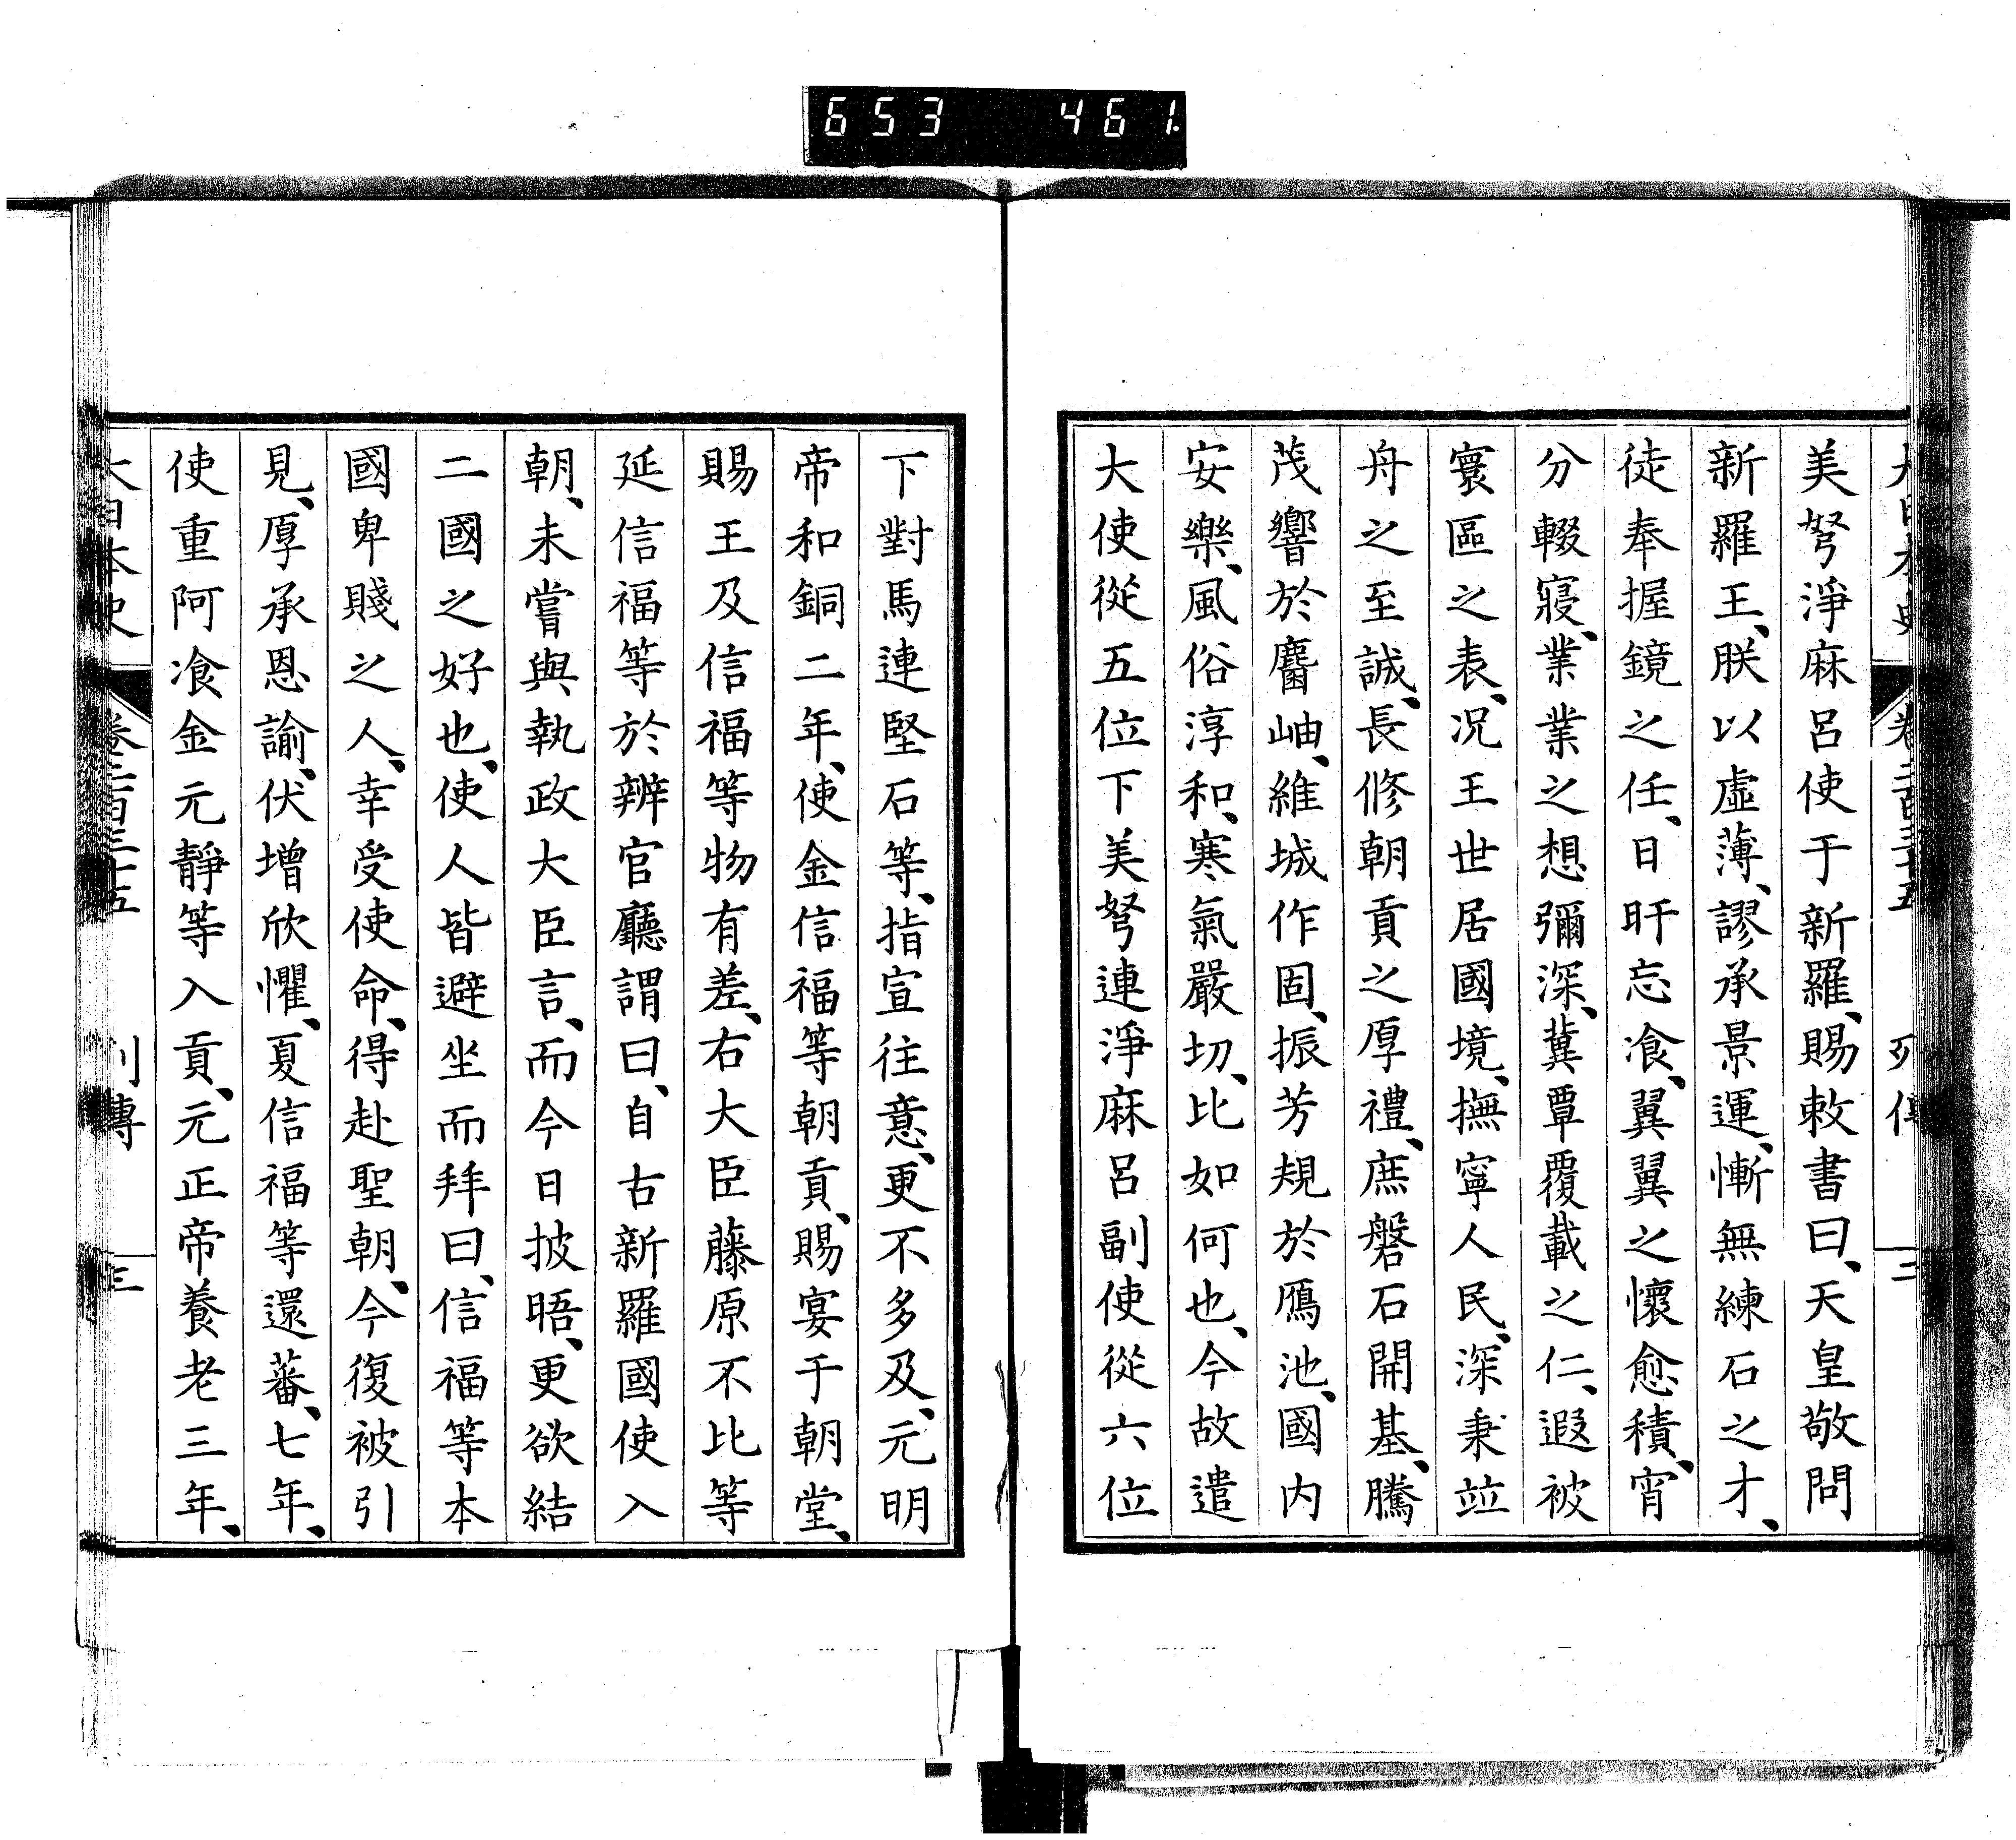 653 461.
大日本史 卷二百三十五 列傳 二
美努淨麻呂使于新羅、賜敕書曰、天皇敬問
新羅王、朕以虛薄、謬承景運、慚無練石之才、
徒奉握鏡之任、日旰忘飡、翼翼之懷愈積、宵
分輟寢、業業之想彌深、冀覃覆載之仁、遐被
寰區之表、況王世居國境、撫寧人民、深秉竝
舟之至誠、長修朝貢之厚禮、庶磐石開基、騰
茂響於麕岫、維城作固、振芳規於鴈池、國內
安樂、風俗淳和、寒氣嚴切、比如何也、今故遣
大使從五位下美努連淨麻呂副使從六位
下對馬連堅石等、指宣往意、更不多及、元明
帝和銅二年、使金信福等朝貢、賜宴于朝堂、
賜王及信福等物有差、右大臣藤原不比等
延信福等於辨官廳謂曰、自古新羅國使入
朝、未嘗與執政大臣言、而今日披晤、更欲結
二國之好也、使人皆避坐而拜曰、信福等本
國卑賤之人、幸受使命、得赴聖朝、今復被引
見、厚承恩諭、伏增欣懼、夏信福等還蕃、七年、
使重阿飡金元靜等入貢、元正帝養老三年、
大日本史 卷二百三十五 列傳 三